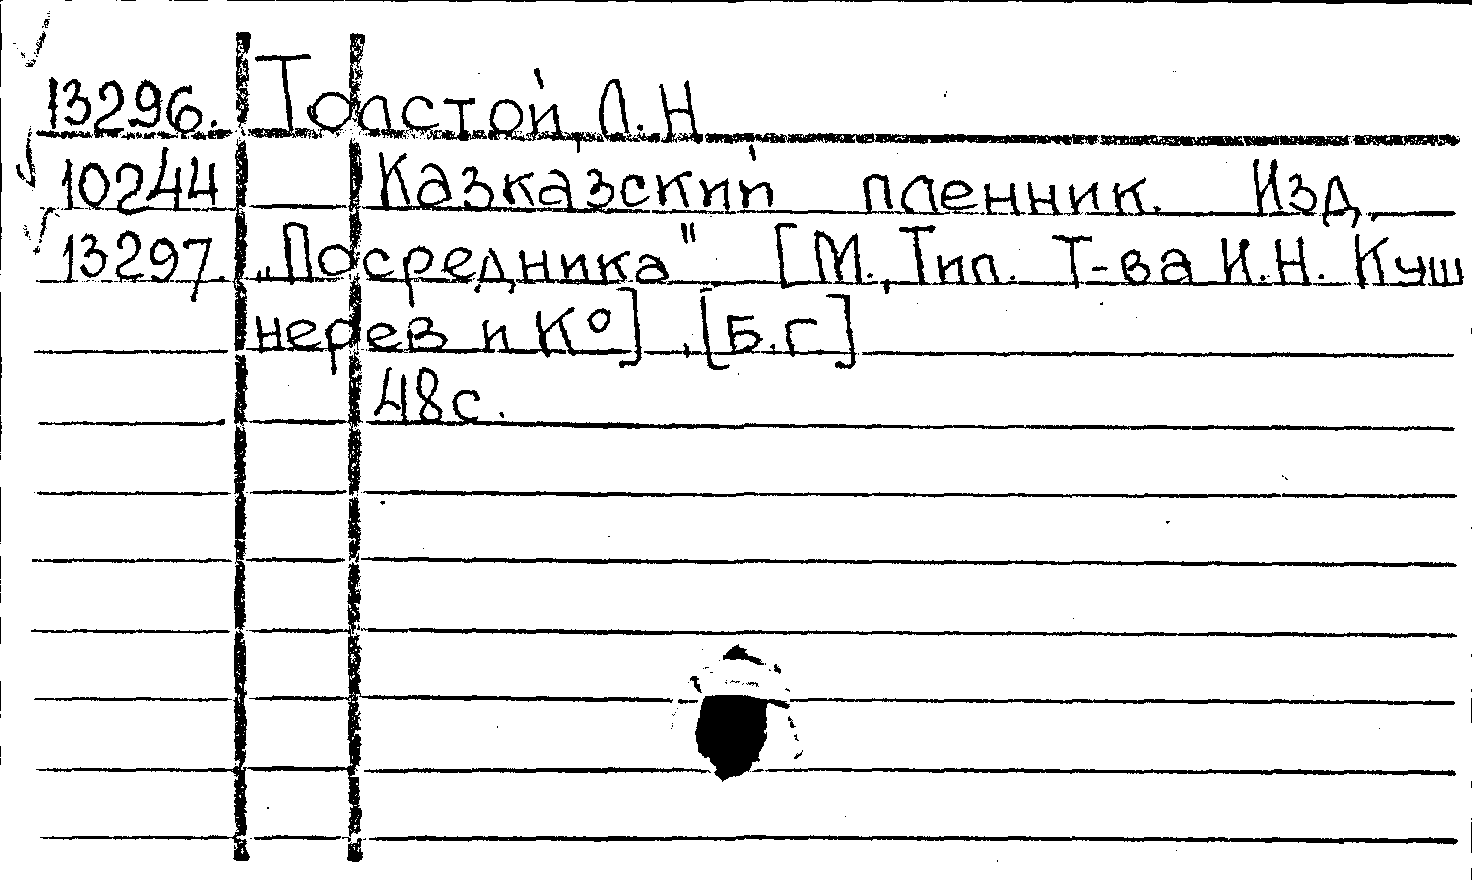 13296. Толстой, Л.Н
10244 Казказский пленник. Изд.
13297. „Посредника" [М., Тип. Т-ва И.Н. Куш
нерев и К°], [Б.г]
48с.